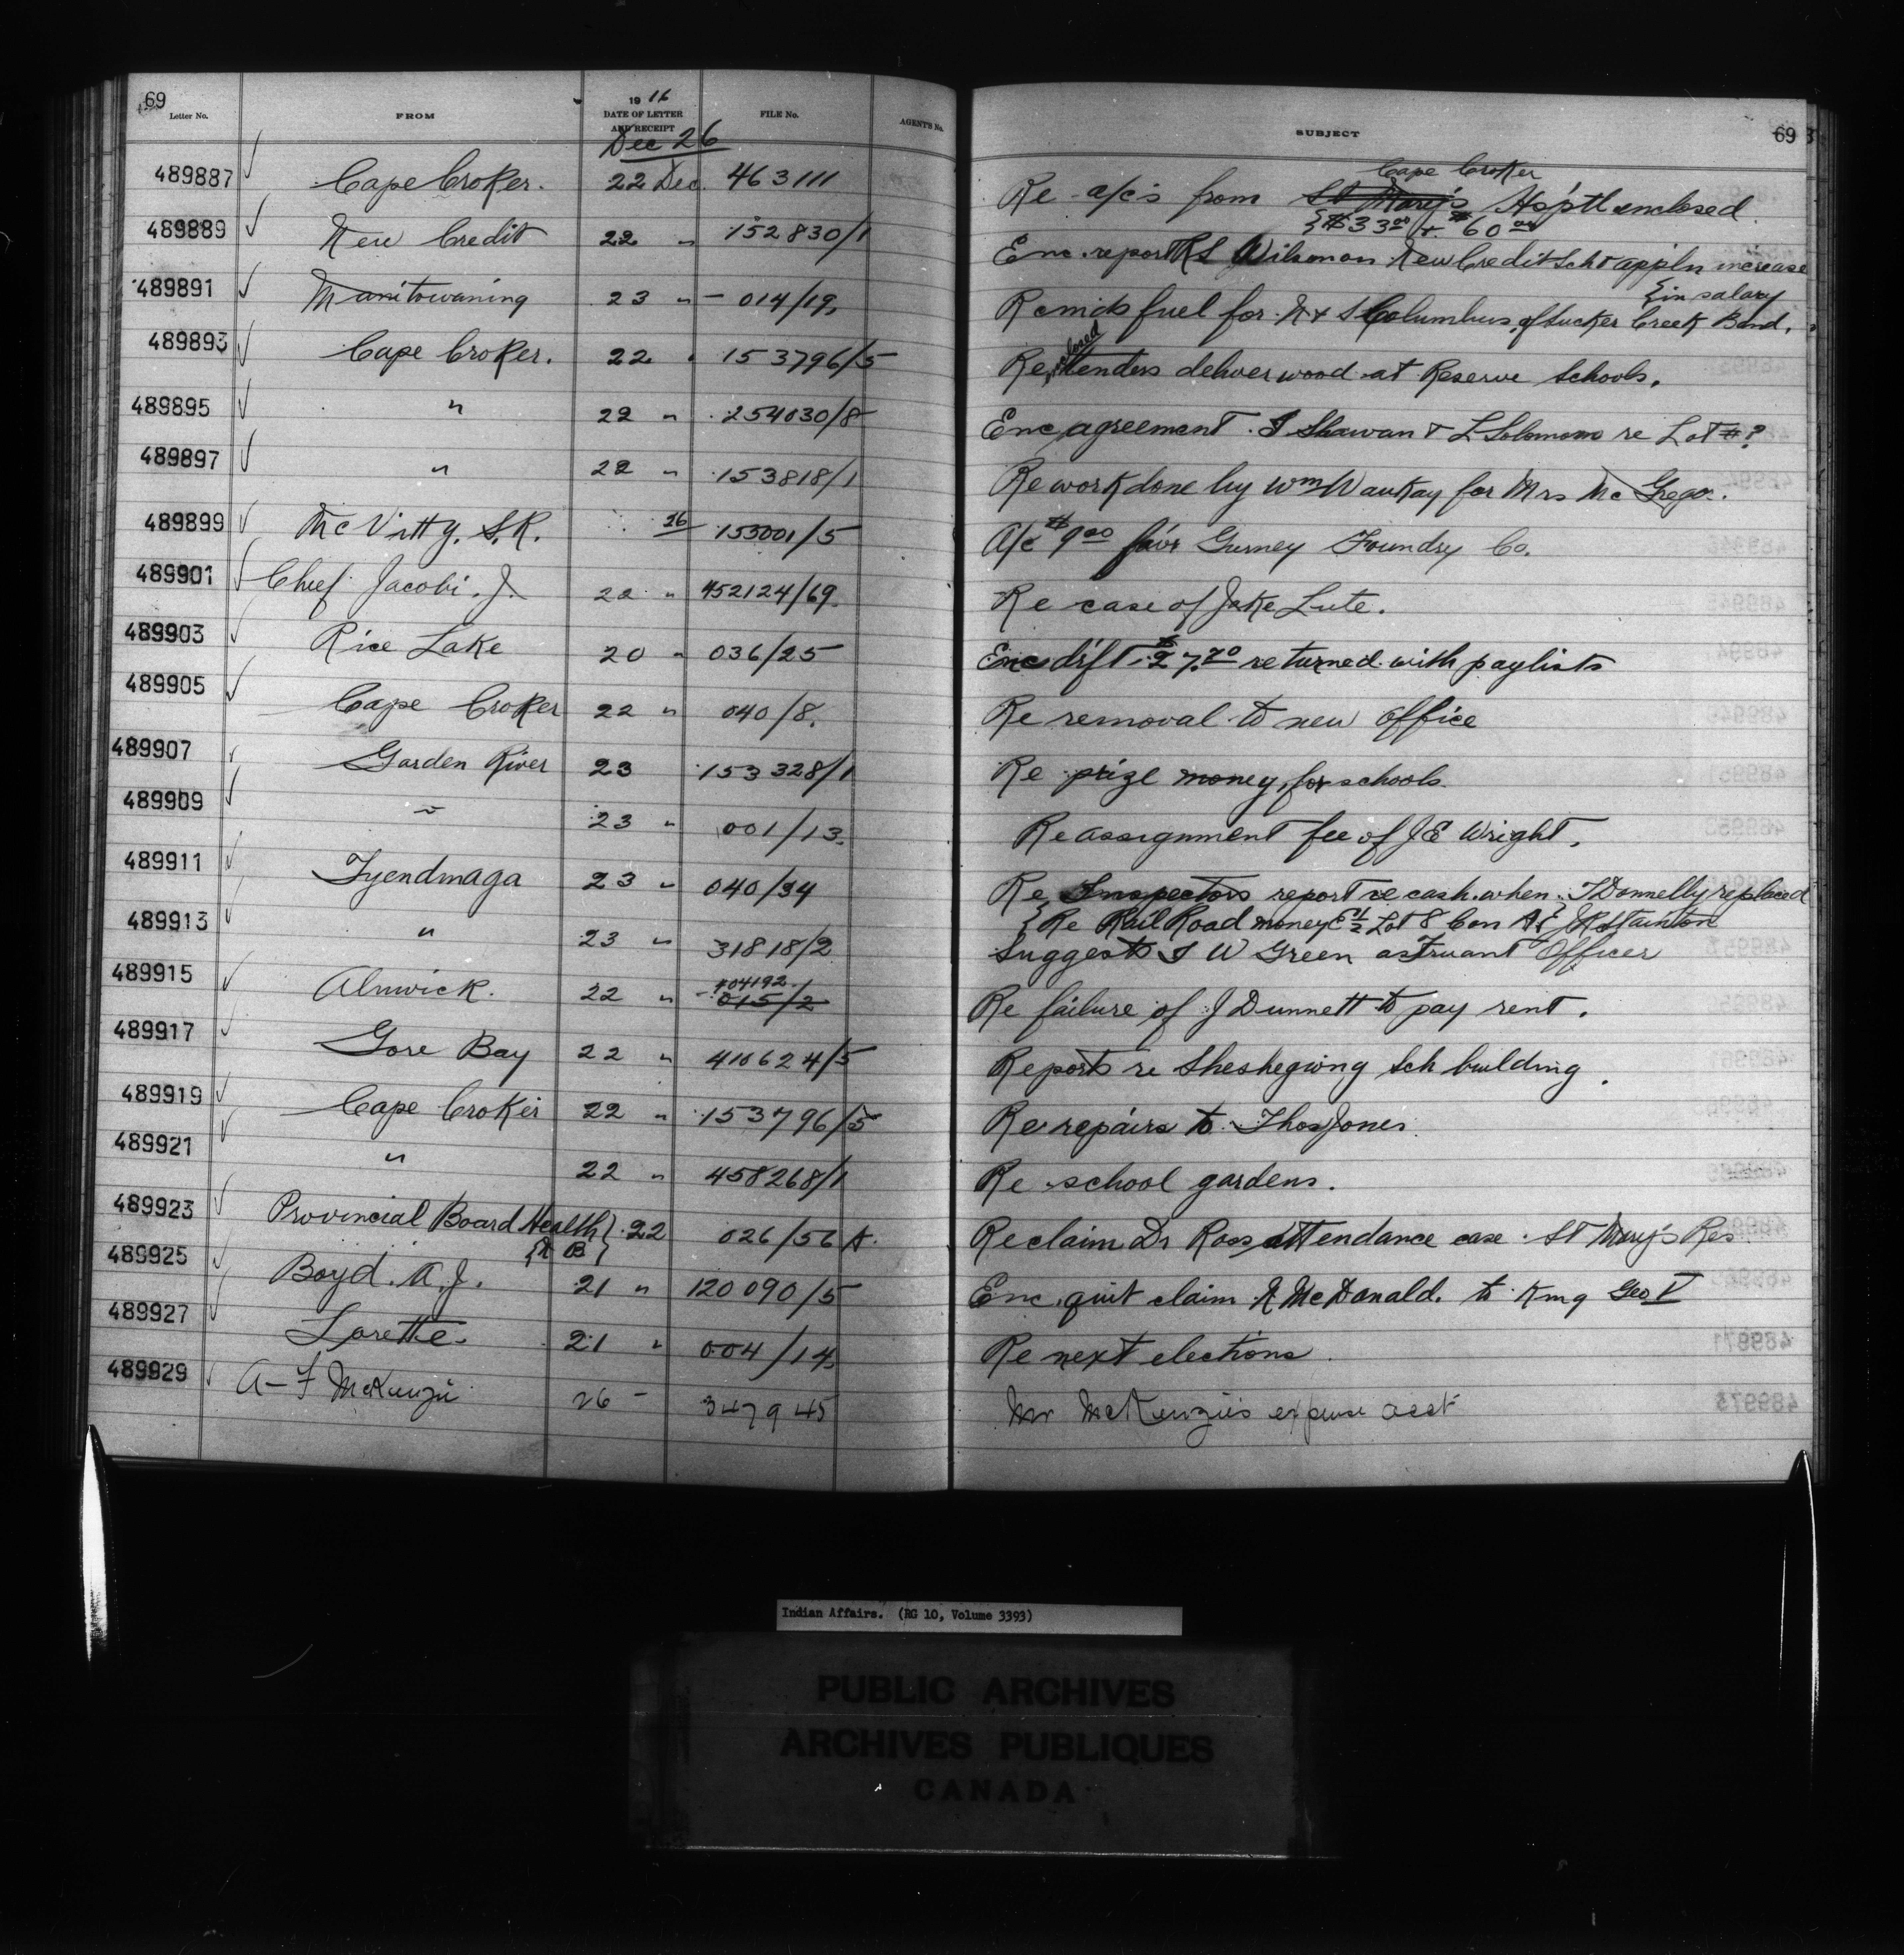 69
Letter No. FROM 19 16 DATE OF LETTER AND RECEIPT FILE No. AGENT'S No. SUBJECT 69
Dec 26
Cape Croker
489887 Cape Croker. 22 Dec. 463111 Re a/c's from St Mary's Hsp'tl enclosed.
{$33.00 + $60.00
489889 New Credit 22 " 152830/1 Enc. report R S Wilson on New Credit Sch & appl'n increase
{in salary
489891 Manitowaning 23 " 014/19. Reminds fuel for N & S Columbus of Sucker Creek Band.
489893 Cape Croker. 22 " 153796/5 Re enclosed tenders deliver wood at Reserve Schools.
489895 " 22 " 254030/8 Enc agreement J Shawan & L Solomon re Lot #?
489897 " 22 " 153818/1 Re work done by Wm Waukay for Mrs McGregor.
489899 McVitty, S.R. 26 153001/5 A/c $9.00 fav'r Gurney Foundry Co.
489901 Chief Jacobi. J. 22 " 452124/69. Re case of Jake Lute.
489903 Rice Lake 20 " 036/25 Enc dr'ft $27.70 returned with paylists
489905 Cape Croker 22 " 040/8. Re removal to new office
489907 Garden River 23 153328/1 Re prize money for schools.
489909 " 23 " 001/13. Re assignment fee of J E Wright.
489911 Tyendinaga 23 " 040/34 Re Inspectors report re cash when T Donnelly replaced
{Re Rail Road money E 1/2 Lot 8 Con A {J R Stainton
489913 " 23 " 31818/2 Suggests J W Green as Truant Officer
404192
489915 Alnwick. 22 " 015/2 Re failure of J Dunnett to pay rent.
489917 Gore Bay 22 " 410624/5 Reports re Sheshegwing Sch building.
489919 Cape Croker 22 " 153796/5 Re repairs to Thos Jones
489921 " 22 " 458268/1 Re school gardens.
489923 Provincial Board Health} 22 026/56 A. Re claim Dr Ross attendance case St Mary's Res.
{N B}
489925 Boyd. A. J. 21 " 120090/5 Enc. quit claim R McDonald. to King Geo V
489927 Lorette. 21 " 004/14. Re next elections.
489929 A-F McKenzie 26 - 347945 Mr McKenzie's expense acct
Indian Affairs. (RG 10, Volume 3393)
PUBLIC ARCHIVES
ARCHIVES PUBLIQUES
CANADA